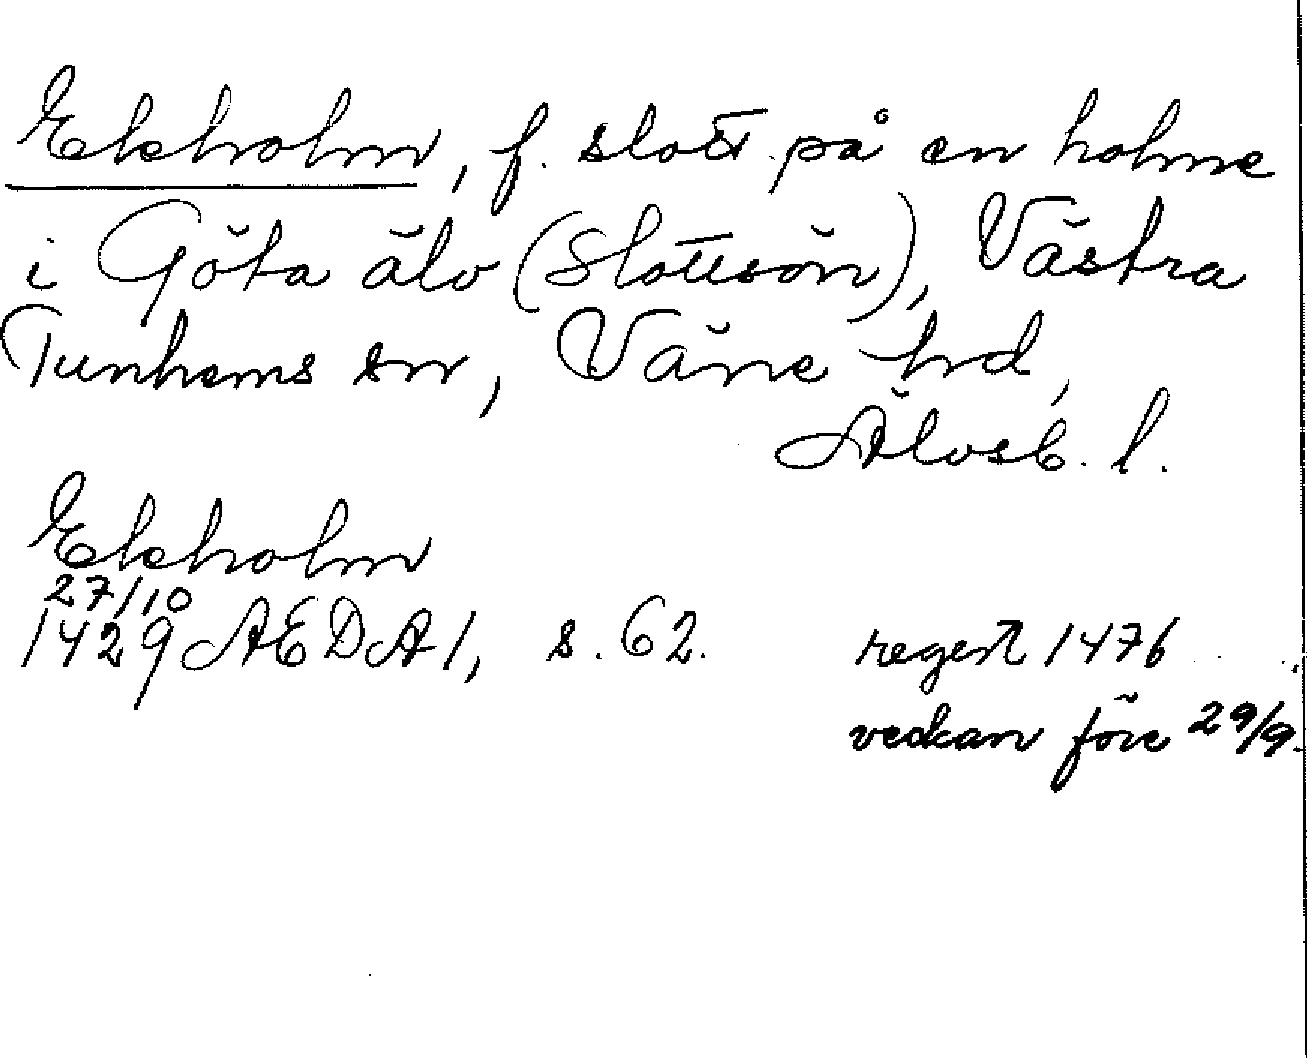 Ekholm, f. slott på en holme
i Göta älv (Slottsön), Västra
Tunhems sn, Väne hd,
Älvsb. l.
Ekholm
27/10
1429 AEDA 1, s. 62. regest 1476
veckan före 29/9.